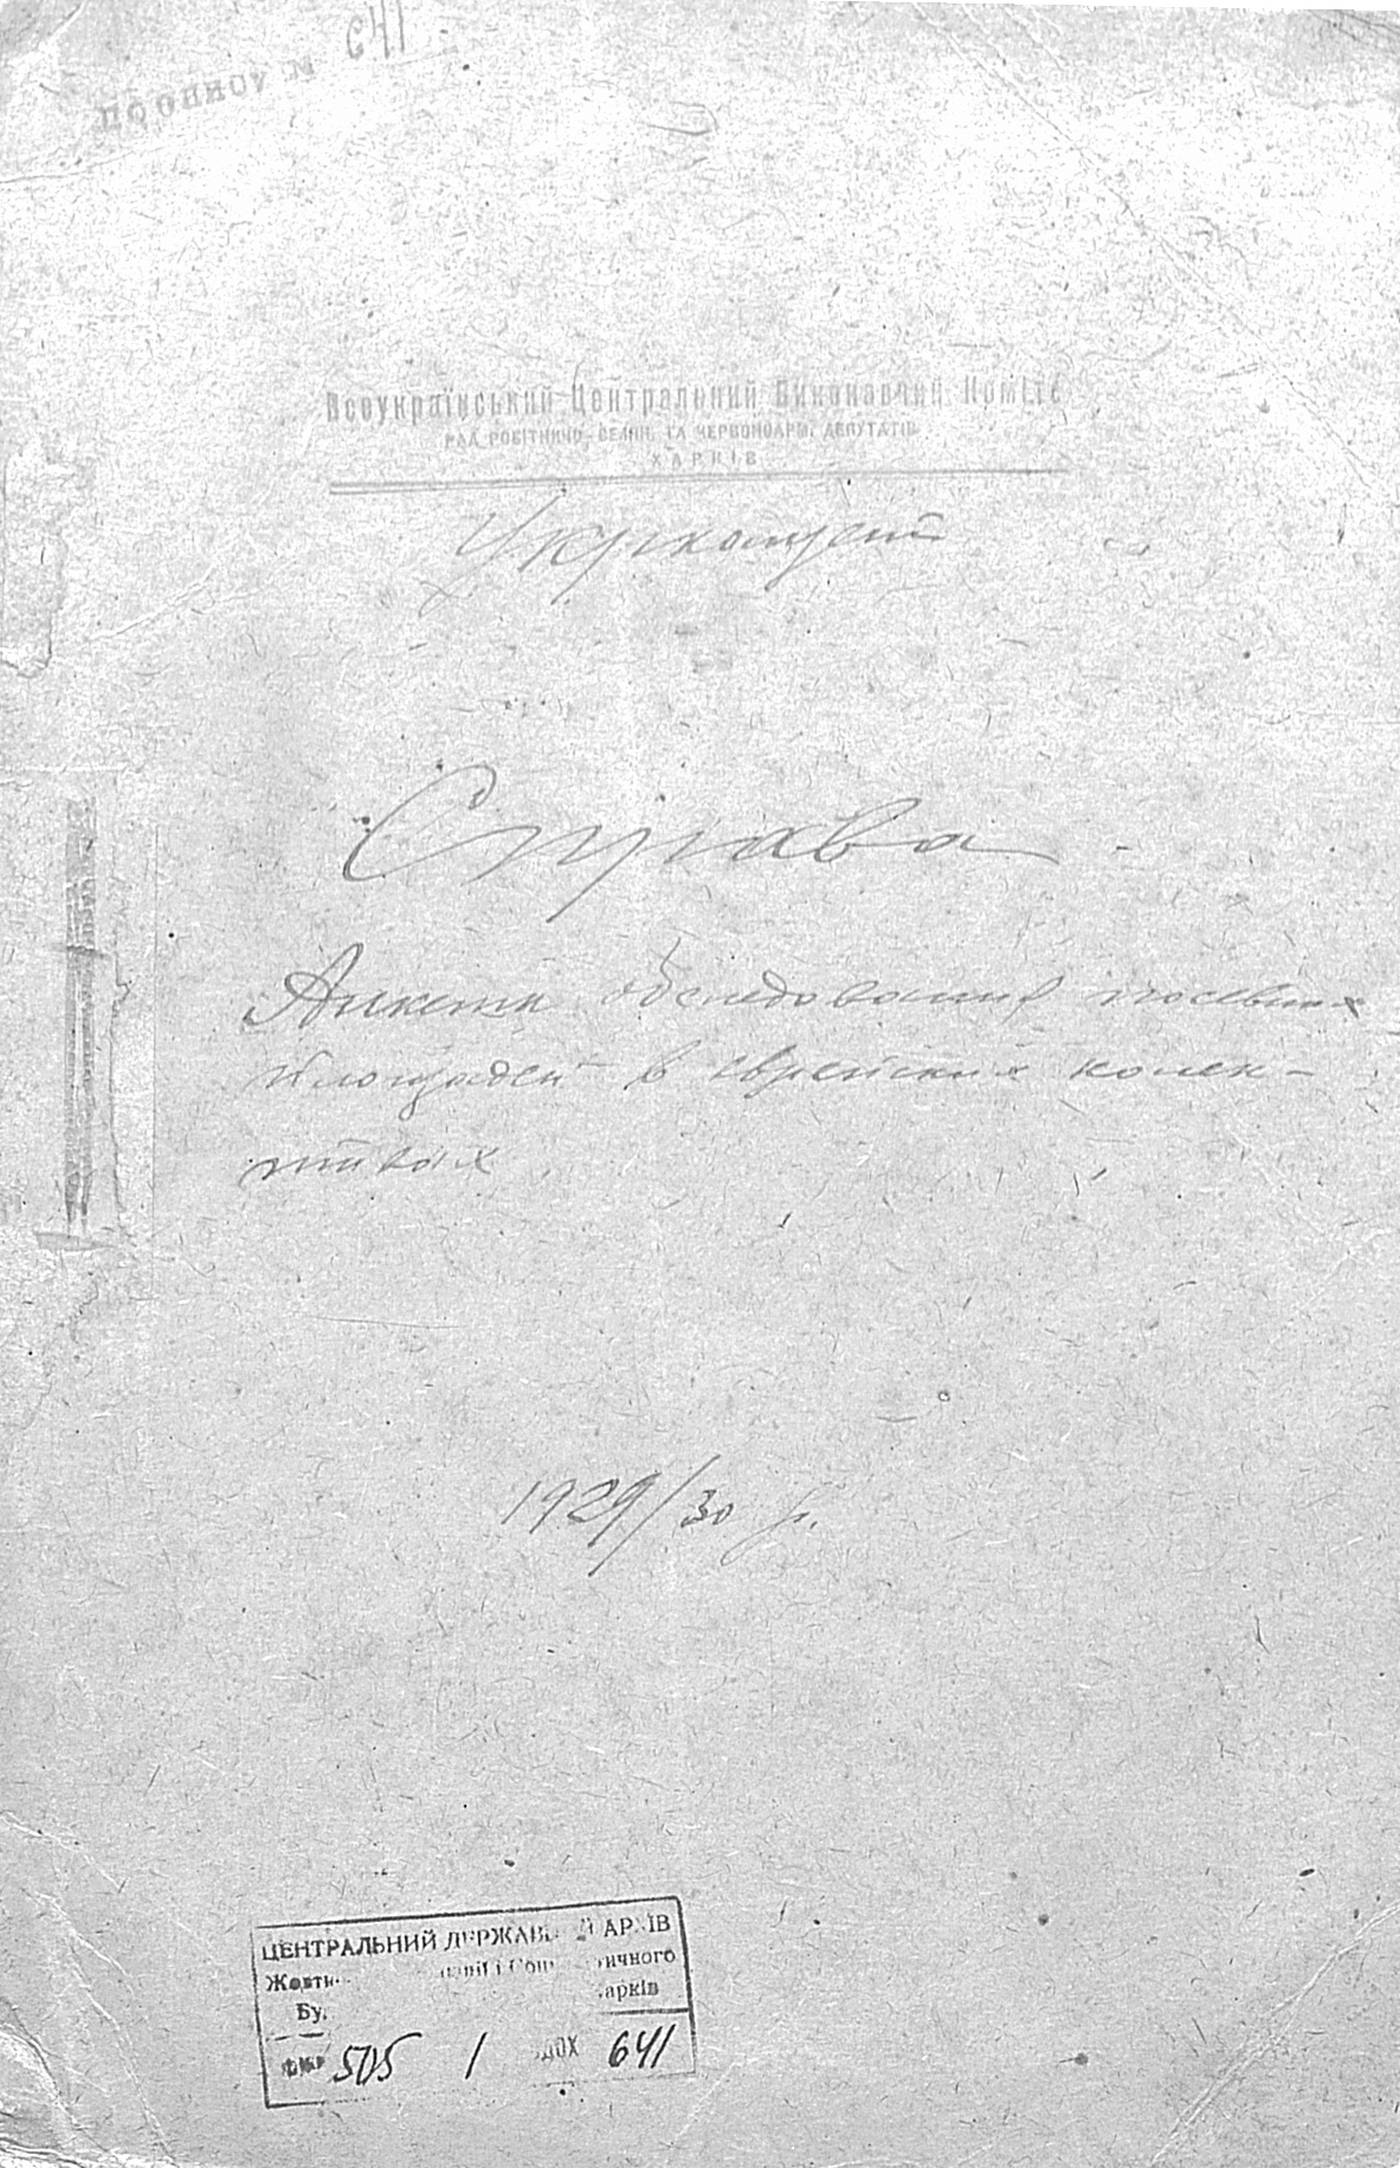 по опису № 641
Всеукраїнський Центральний Виконавчий Комітет
РАД РОБІТНИЧО-СЕЛЯН. ТА ЧЕРВОНОАРМ. ДЕПУТАТІВ
ХАРКІВ
Укркомзет
Справа
Анкеты обследования посевных
площадей в еврейских колек-
тивах
1929/30 г.
ЦЕНТРАЛЬНИЙ ДЕРЖАВНИЙ АРХІВ
505 1 641